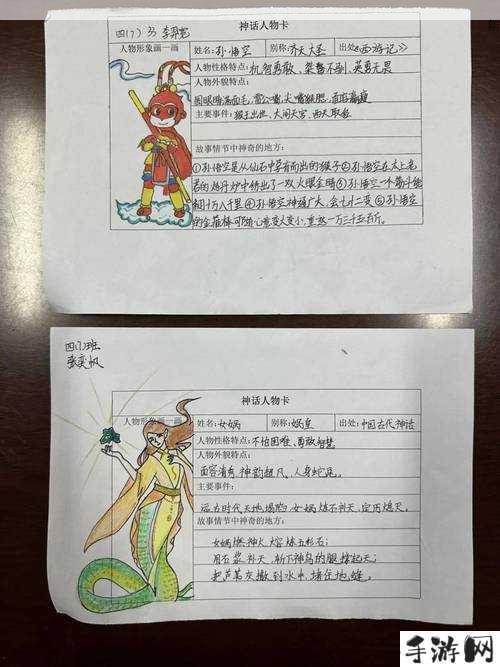 四(7) 33 李羿宽
神话人物卡
人物形象画一画
姓名:孙悟空 别称:齐天大圣 出处《西游记》
人物性格特点:机智勇敢、桀骜不驯、英勇无畏
人物外貌特点:
圆眼睛满面毛,雷公嘴,火嘴猴腮,面容羸瘦
主要事件:猴王出世、大闹天宫、西天取经
故事情节中神奇的地方:
①孙悟空是从仙石中孕育而出的猴子②孙悟空在太上老
君的炼丹炉中炼出了一双火眼金睛③孙悟空一个筋斗能
翻十万八千里④孙悟空神通广大,会七十二变⑤孙悟空
的金箍棒可随心意变大变小,重达一万三千五百斤。
四(7)班
张奕帆
神话人物卡
人物形象画一画
姓名:女娲 别称:娲皇 出处:中国古代神话
人物性格特点:不怕困难、勇敢智慧
人物外貌特点:
面容清秀,神韵超凡,人身蛇尾。
主要事件:
远古时代天地塌陷,女娲炼石补天,定用熄灭。
故事情节中神奇的地方:
女娲燃神火大窑炼五彩石;
用石浆补天,斩下神鸟的腿撑起天;
把芦苇灰撒到水中,堵住地缝。
手游网